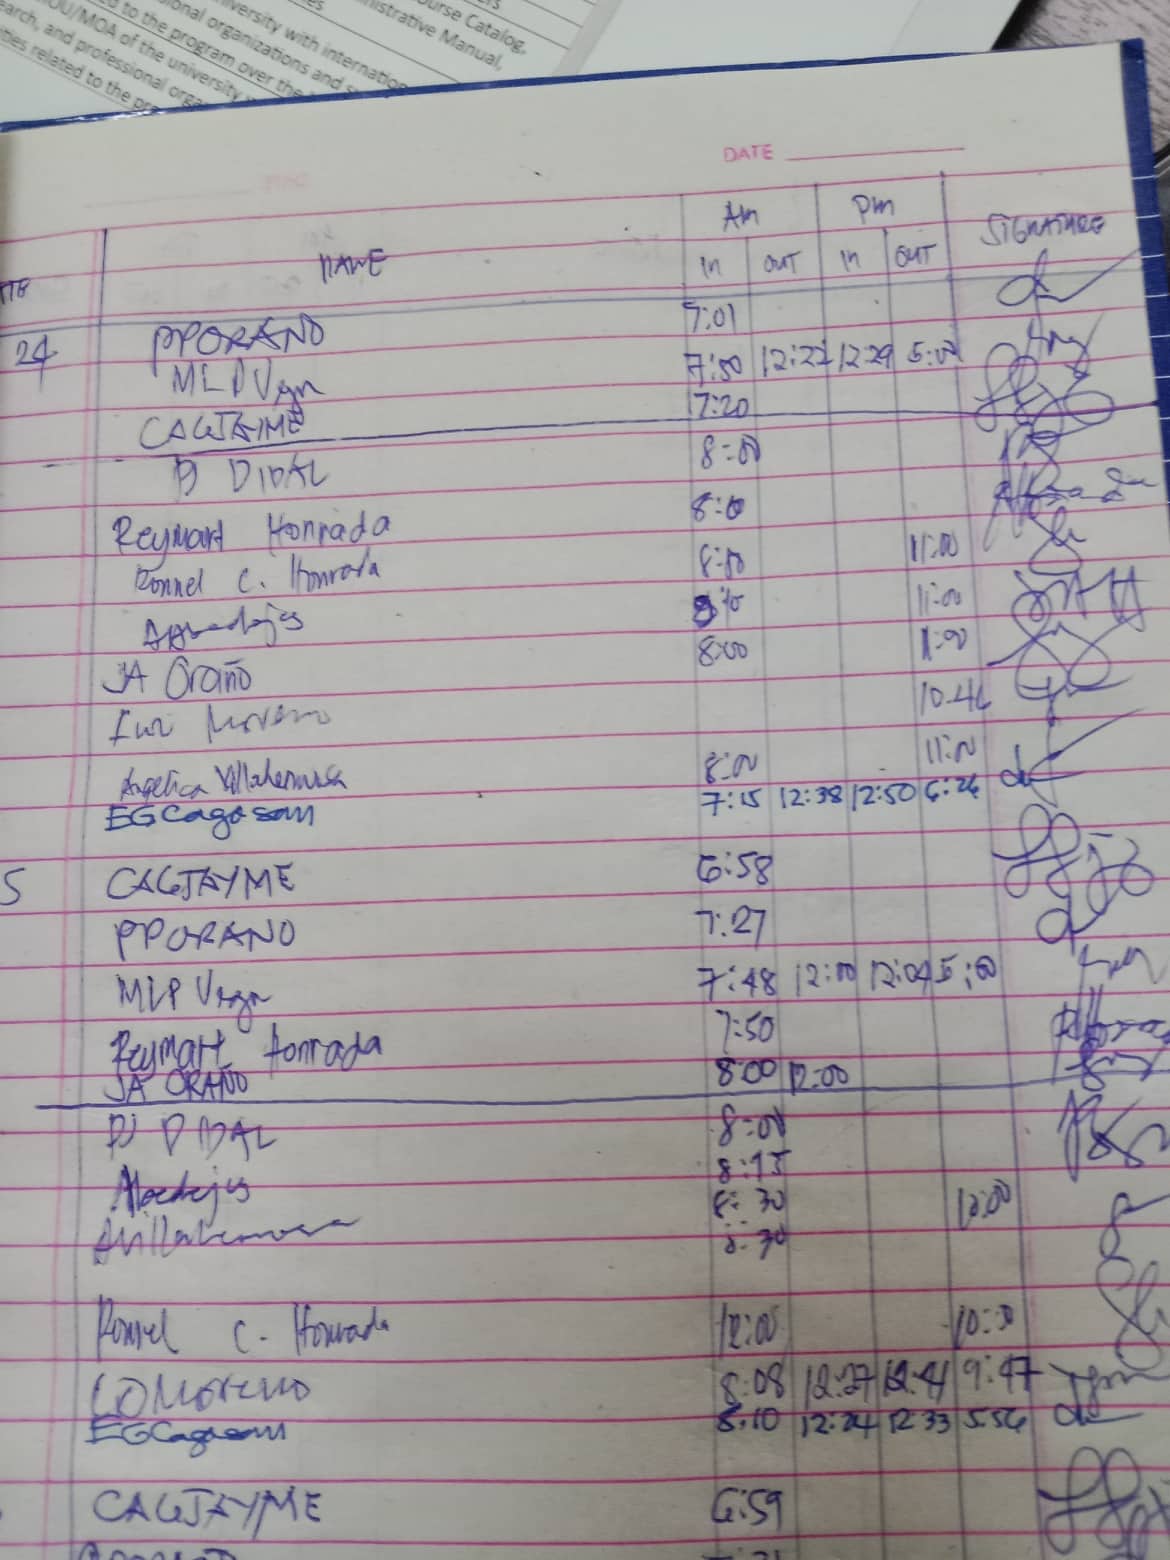 ers
ourse Catalog,
ministrative Manual,
iversity with internation
sional organizations and s
ed to the program over the
OU/MOA of the university
earch, and professional orga
ities related to the pr
DATE
NAME Am Pm SIGNATURE
In OUT In OUT
24 PPORANO 7:01
MLP 7:50 12:27 12:29 5:00
CAGJAYME 7:20
DIDAL 8:00
Reymart Honrada 8:00
Ronnel C. Honrada 8:00 11:00
11:00
JA Oraño 8:00 11:00
Moreno 10:46
Angelica Villahermosa 8:00 11:00
EGCagasan 7:15 12:38 12:50 6:26
5 CAGJAYME 6:58
PPORANO 7:27
MLP 7:48 12:00 12:04 5:00
Reymart Honrada 7:50
JA ORAÑO 8:00 12:00
8:00
8:15
8:30 10:00
8:30
Ronnel C. Honrada 12:00 10:30
LOMoreno 8:08 12:27 12:41 9:47
EGCagasan 8:10 12:24 12:33 5:56
CAGJAYME 6:59